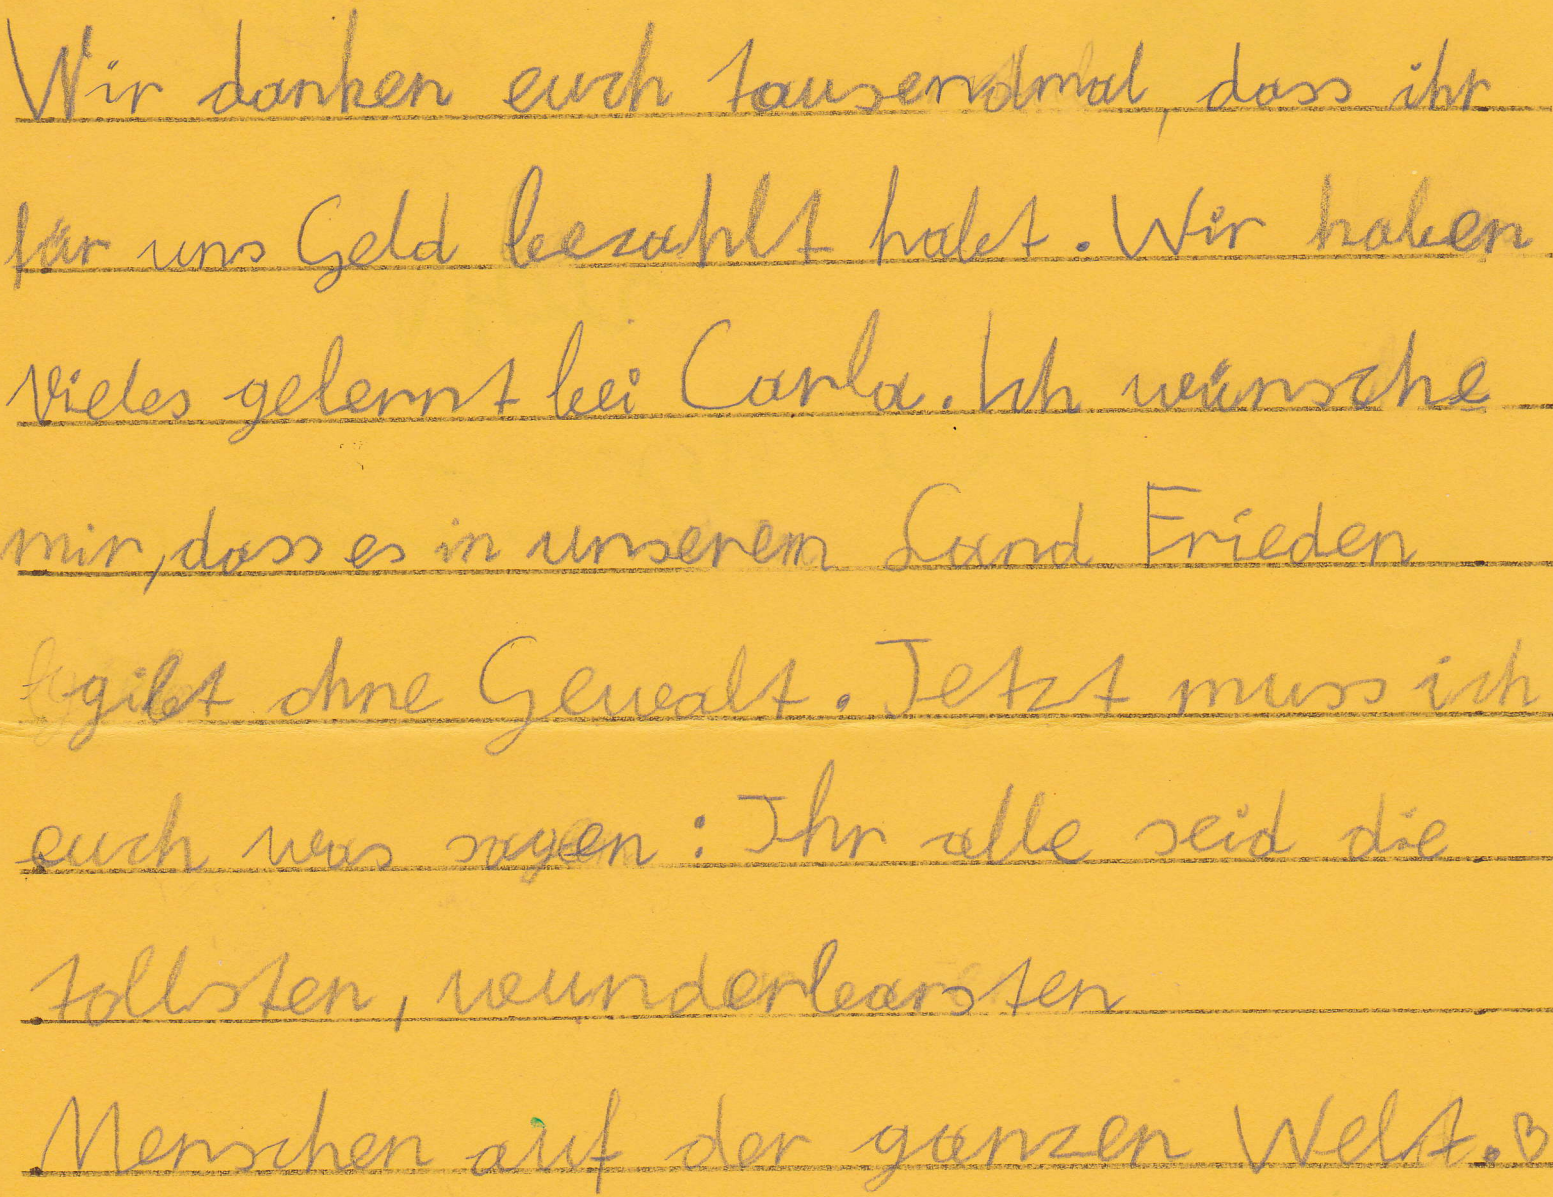 Wir danken euch tausendmal, dass ihr
für uns Geld bezahlt habt. Wir haben
vieles gelernt bei Carla. Ich wünsche
mir, dass es in unserem Land Frieden
gibt ohne Gewalt. Jetzt muss ich
euch was sagen: Ihr alle seid die
tollsten, wunderbarsten
Menschen auf der ganzen Welt. ♡